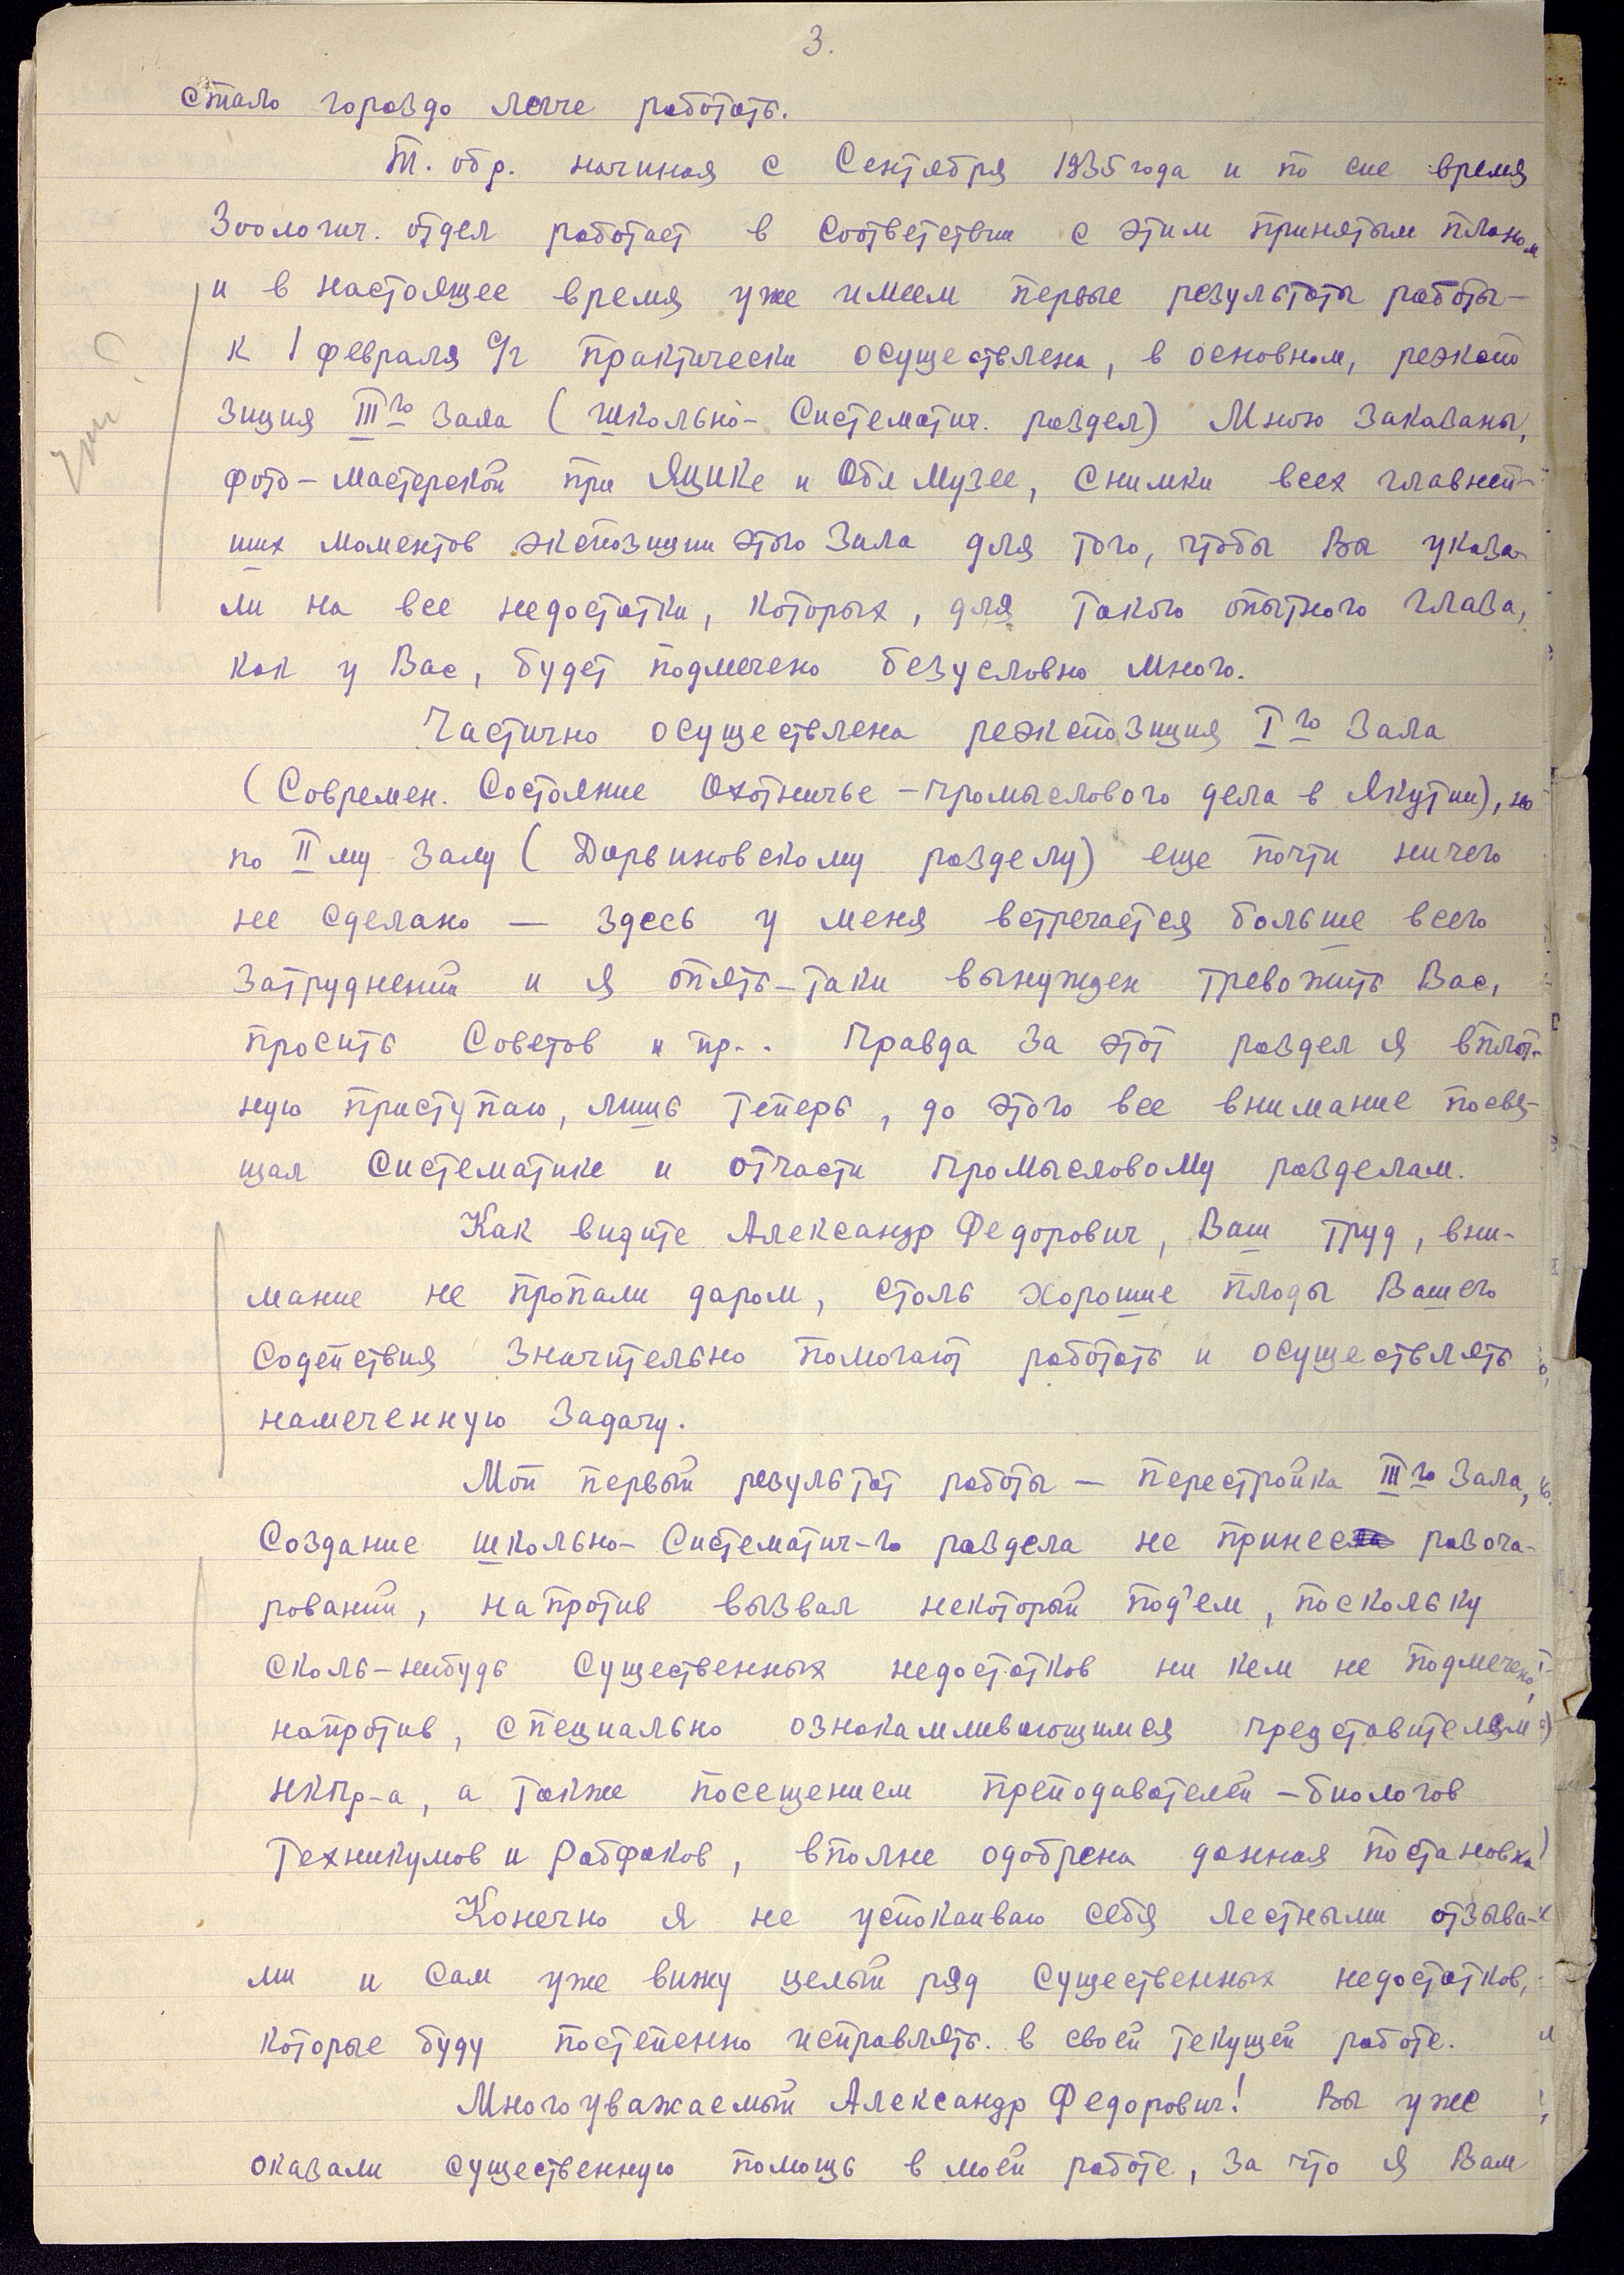 3.
стало гораздо легче работать.
Т. обр. начиная с Сентября 1935 года и по сие время
Зоологич. отдел работает в соответствии с этим принятым планом
и в настоящее время уже имеем первые результаты работы —
к 1 февраля с/г практически осуществлена, в основном, реэкспо
зиция III го Зала (школьно-Систематич. раздел) Мною Заказаны,
фото-мастерской при ЯЦИКе и Обл Музее, снимки всех главней-
ших моментов экспозиции этого Зала для того, чтобы Вы указа-
ли на все недостатки, которых, для такого опытного глаза,
как у Вас, будет подмечено безусловно много.
Частично осуществлена реэкспозиция I го Зала
(Современ. Состояние Охотничье-промыслового дела в Якутии), но
по II му Залу (Дарвиновскому разделу) еще почти ничего
не сделано — здесь у меня встречается больше всего
затруднений и я опять-таки вынужден тревожить Вас,
просить Советов и пр.. Правда за этот раздел я вплот-
ную приступаю, лишь теперь, до этого все внимание посвя-
щал Систематике и отчасти промысловому разделам.
Как видите Александр Федорович, Ваш труд, вни-
мание не пропали даром, столь хорошие плоды Вашего
Содействия значительно помогают работать и осуществлять
намеченную Задачу.
Мой первый результат работы — перестройка III го Зала,
Создание школьно-Систематич-го раздела не принес разоча-
рований, напротив вызвал некоторый под'ем, поскольку
сколь-нибудь существенных недостатков ни кем не подмечено,
напротив, специально ознакамливающимся представителям
НКПр-а, а также посещением преподавателей-биологов
Техникумов и Рабфаков, вполне одобрена данная постановка
Конечно я не успокаиваю себя лестными отзыва-
ми и сам уже вижу целый ряд существенных недостатков,
которые буду постепенно исправлять. в своей текущей работе.
Многоуважаемый Александр Федорович! Вы уже
оказали существенную помощь в моей работе, за что я Вам